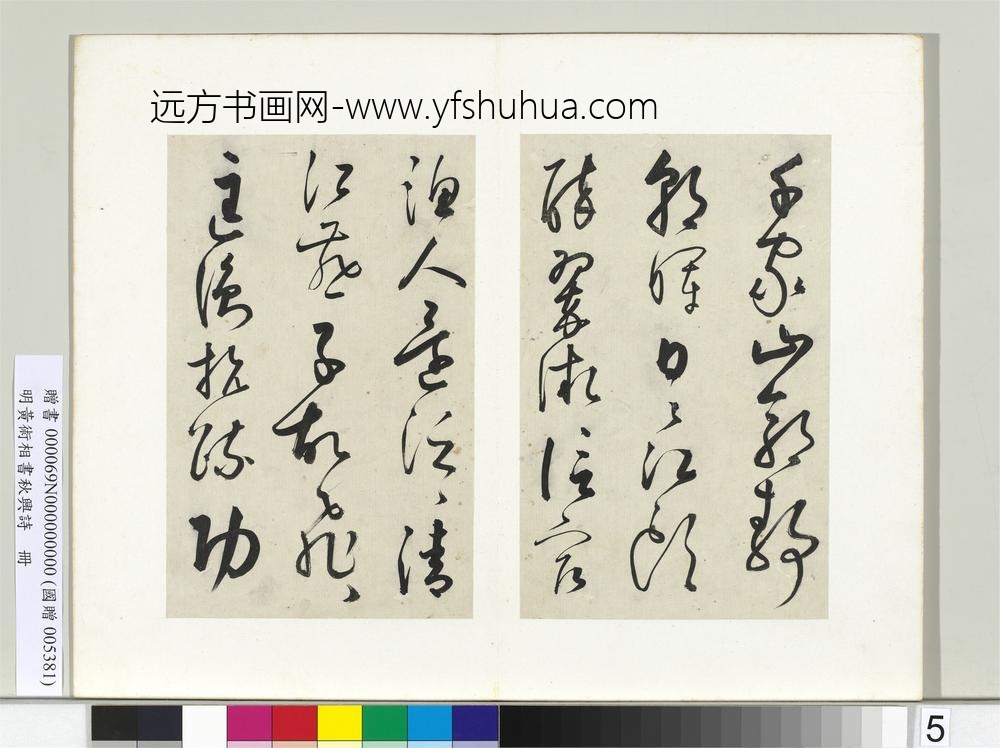 远方书画网-www.yfshuhua.com
千家山郭靜
朝暉日〻江頭
醉翠微信宿
漁人還泛〻清
江燕子故飛〻
匡衡抗疏功
贈書 000069N000000000 (國贈 005381)
明黃術相書秋興詩 冊
5